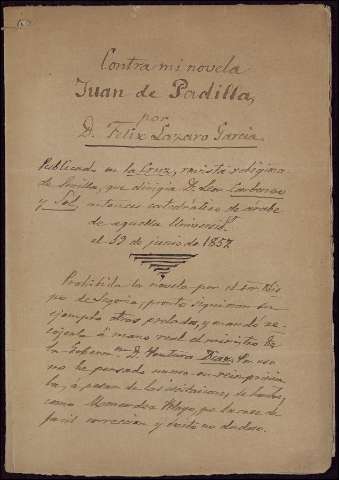 Contra mi novela
Juan de Padilla,
por
D. Felix Lazaro Garcia.
Publicado en La Cruz, revista religiosa
de Sevilla, que dirigia D. Leon Carbonero
y Sol, entonces catedrático de árabe
de aquella Universid.d
el 19 de junio de 1857.
Prohibida la novela por el Sr. Obis-
po de Segovia, pronto siguieron su
ejemplo otros prelados, y mandó re-
cojerla á mano real el ministro de
la Gobern.on D. Ventura Diaz. Yo
no he pensado nunca en reimprimir-
la, á pesar de las de hombres
como Menendez Pelayo, que la cree de
facil correccion y éxito no dudoso.